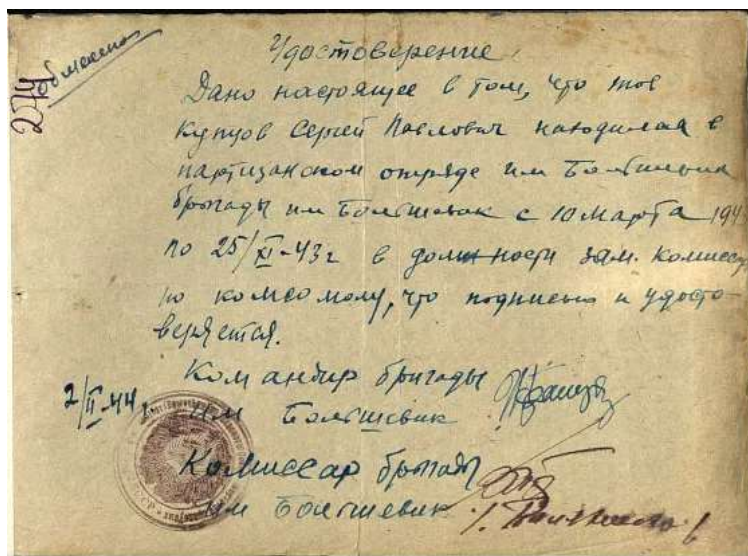 274
Удостоверение
Дано настоящее в том, что тов
Купцов Сергей Павлович находился в
партизанском отряде им Большевик
бригады им Большевик с 10 марта 194
по 25/XI-43г в должности зам. комиссар
по комсомолу, что подписью и удосто-
веряется.
Командир бригады
2/II-44г. им Большевик
Комиссар бригады
им Большевик